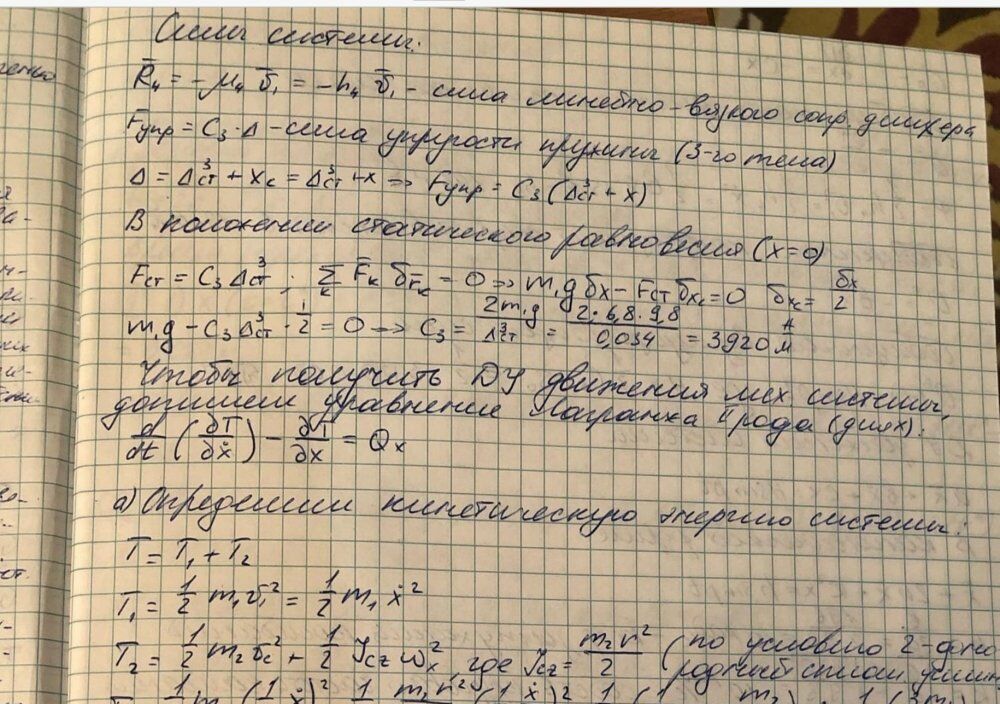 Силы системы:
R̄₄ = -μ₄ v̄₁ = -h₄ v̄₁ - сила линейно-вязкого сопр. демпфера
Fупр = C₃·Δ - сила упругости пружины (3-го тела)
Δ = Δ³ст + xc = Δ³ст + x => Fупр = C₃(Δ³ст + x)
В положении статического равновесия (x=0)
Fст = C₃Δ³ст ; Σₖ F̄ₖ δr̄ₖ = 0 => m₁g δx - Fст δxc = 0 δxc = δx/2
m₁g - C₃Δ³ст · 1/2 = 0 => C₃ = 2m₁g/Δ³ст = 2·6,8·9,8/0,034 = 3920 Н/м
Чтобы получить ДУ движения мех системы,
допишем уравнение Лагранжа II рода (для x):
d/dt (∂T/∂ẋ) - ∂T/∂x = Qx
а) Определим кинетическую энергию системы:
T = T₁ + T₂
T₁ = 1/2 m₁v₁² = 1/2 m₁ẋ²
T₂ = 1/2 m₂vc² + 1/2 Jcz ωx², где Jcz = m₂r²/2 (по условию 2-одно-
родный сплош